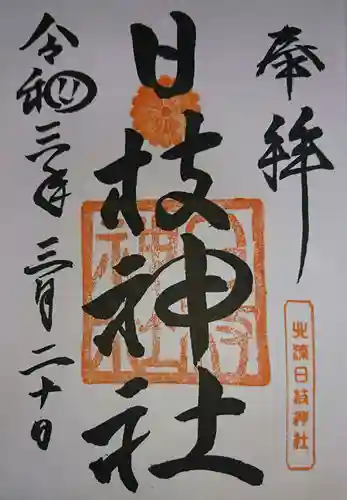 奉拝
日枝神社
令和三年
三月二十日
日枝神社